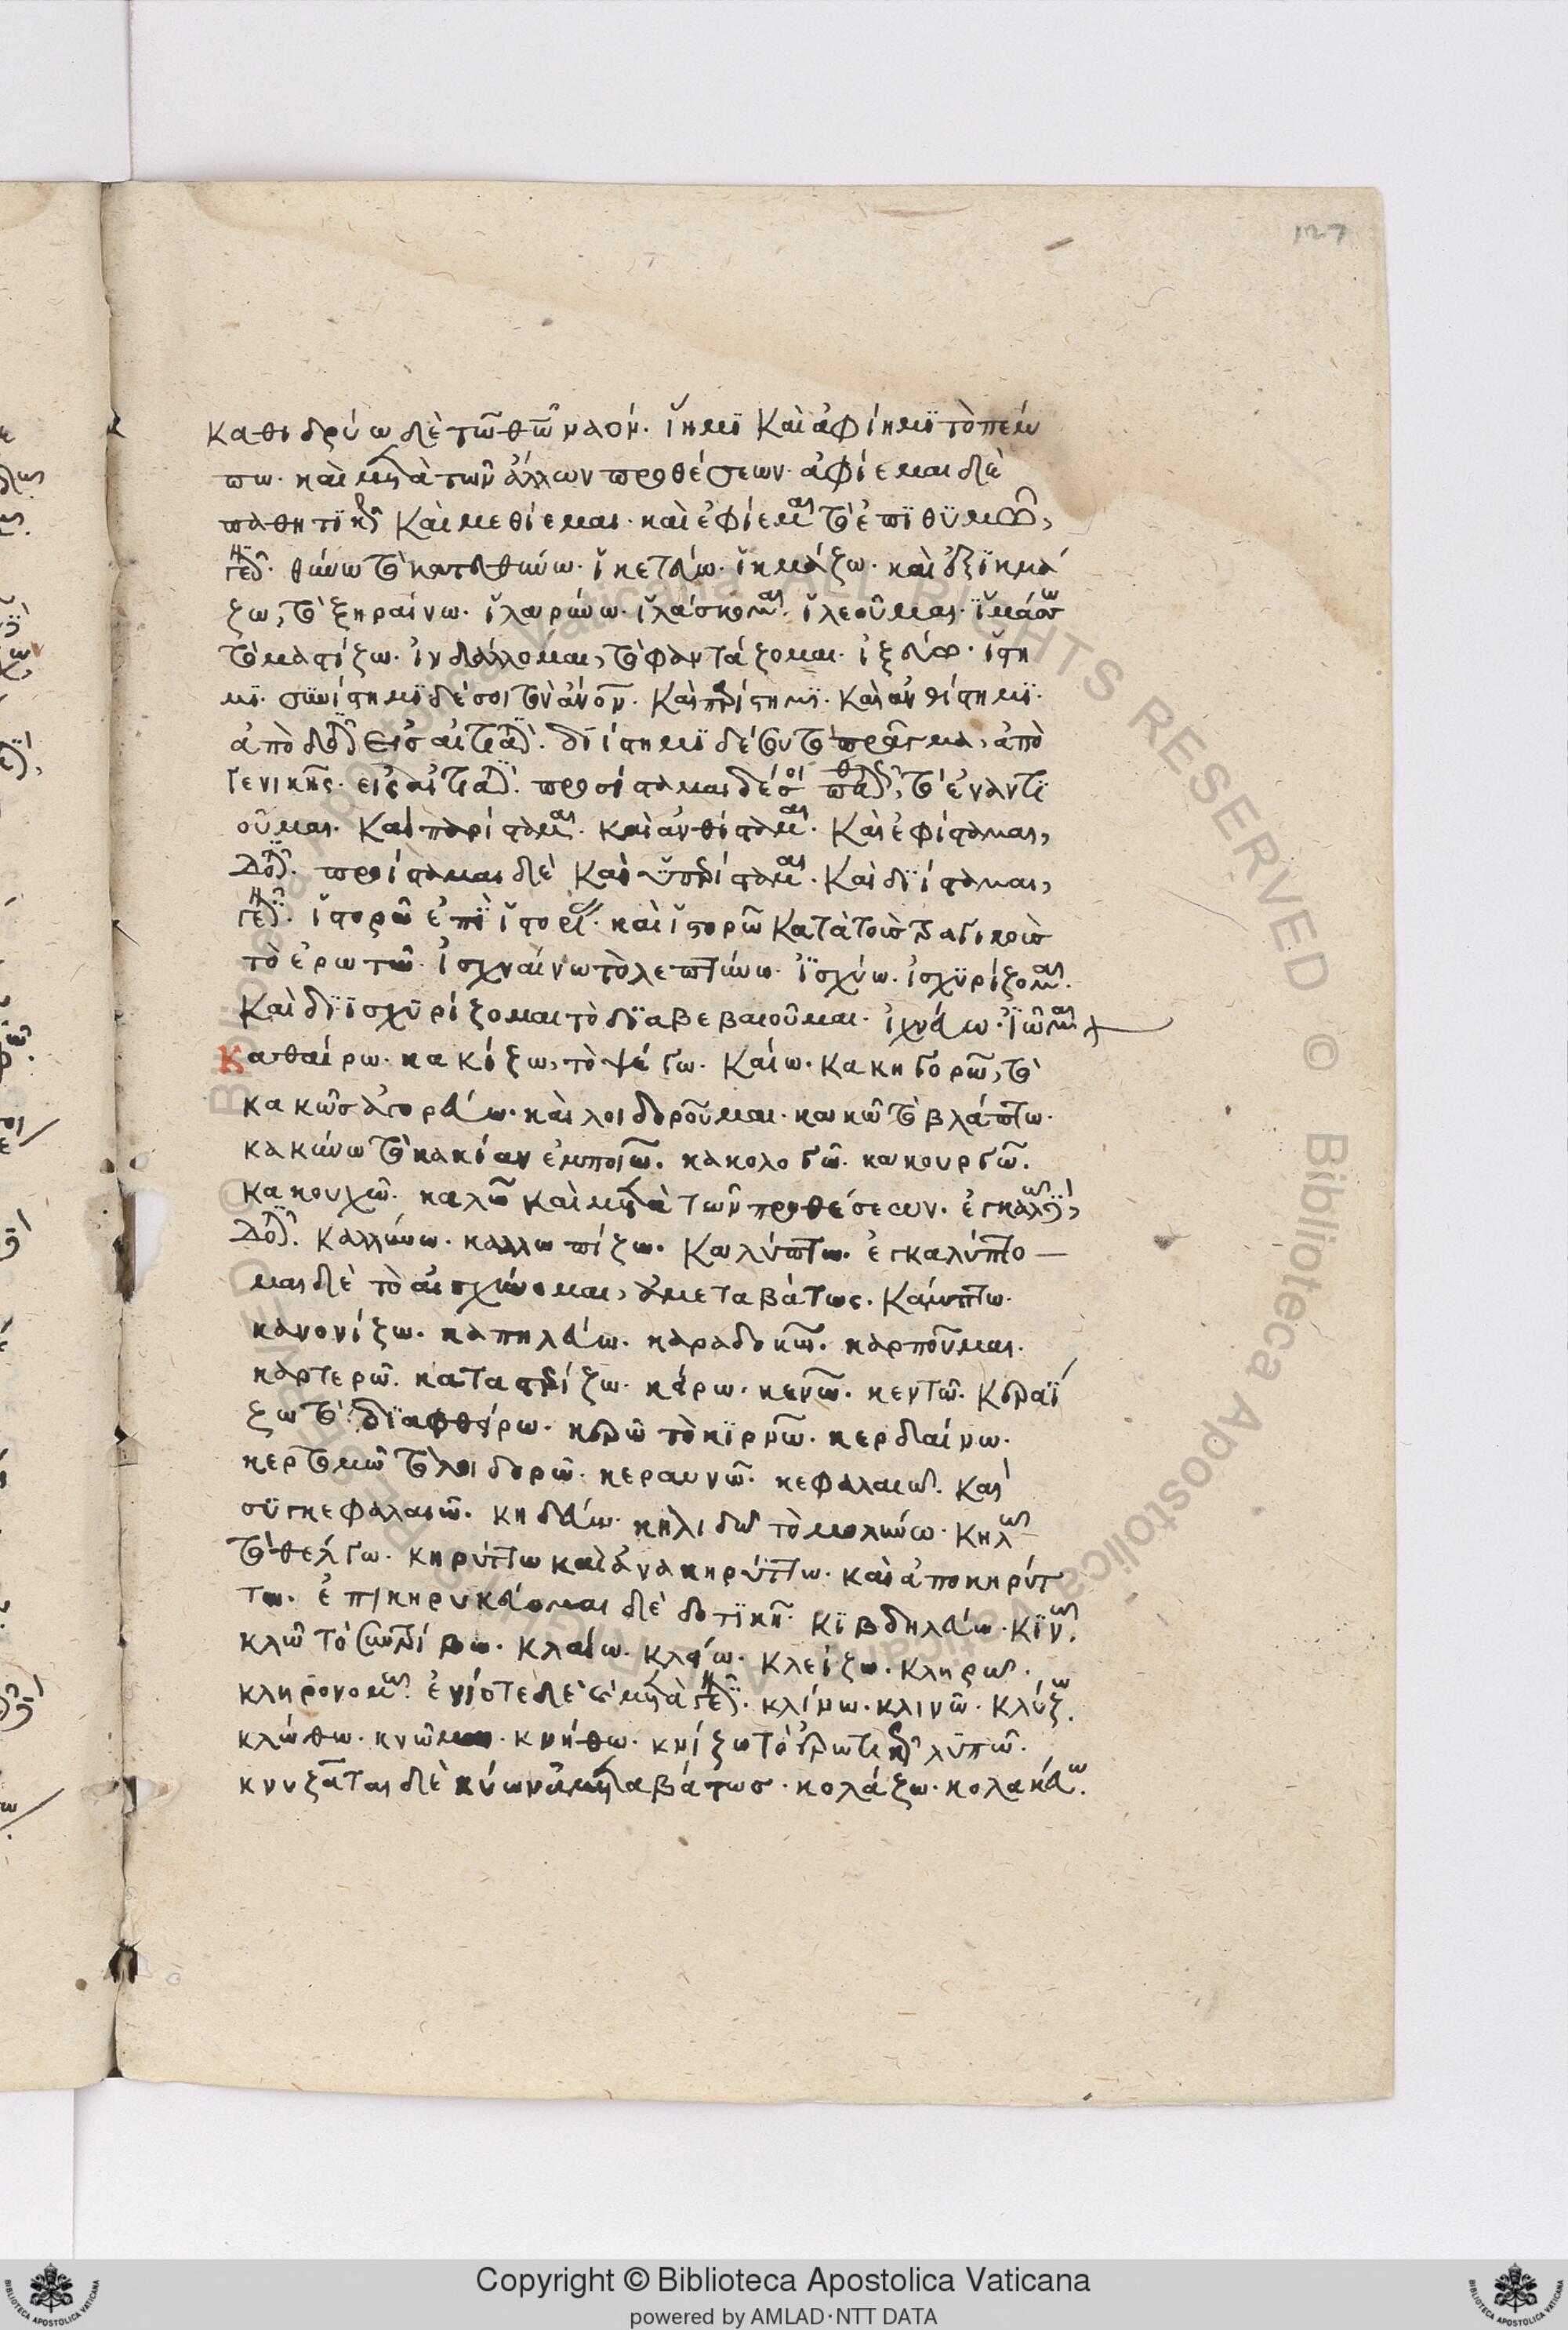 127
καθιδρύω δὲ τῷ θεῷ ναόν. ἵημι καὶ ἀφίημι τὸ πέμ
πω. καὶ μετὰ τῶν ἄλλων προθέσεων. ἀφίεμαι δὲ
παθητικῶς καὶ μεθίεμαι. καὶ ἐφίεμαι τὸ ἐπιθυμῶ,
γενικῇ. θύνω τὸ κατευθύνω. ἱκετεύω. ἰκμάζω. καὶ ἐξικμά
ζω, τὸ ξηραίνω. ἱλαρύνω. ἱλάσκομαι. ἱλεοῦμαι. ἱμάσσω
τὸ μαστίζω. ἰνδάλλομαι, τὸ φαντάζομαι. ἰξεύω. ἵστη
μι. συνίστημι δέ σοι τὸν. καὶ παρίστημι. καὶ ἀνθίστημι.
ἀπὸ δοτικῆς εἰς αἰτιατικήν. διίστημι δὲ τόδε τὸ πρᾶγμα, ἀπὸ
γενικῆς εἰς αἰτιατικήν. προσίσταμαι δέ σοι παθητικῶς, τὸ ἐναντι
οῦμαι. καὶ παρίσταμαι. καὶ ἀνθίσταμαι. καὶ ἐφίσταμαι,
δοτικῇ. προίσταμαι δὲ καὶ ὑπερίσταμαι. καὶ διίσταμαι,
γενικῇ. ἱστορῶ ἐπὶ ἱστορίας. καὶ ἱστορῶ κατὰ τοὺς
τὸ ἐρωτῶ. ἰσχναίνω τὸ λεπτύνω. ἰσχύω. ἰσχυρίζομαι.
καὶ διισχυρίζομαι τὸ διαβεβαιοῦμαι. ἰχνεύω. ἰῶμαι
Καθαίρω. κακίζω, τὸ ψέγω. καίω. κακηγορῶ, τὸ
κακῶς ἀγορεύω. καὶ λοιδοροῦμαι. κακῶ τὸ βλάπτω.
κακύνω τὸ κακίαν ἐμποιῶ. κακολογῶ. κακουργῶ.
κακουχῶ. καλῶ καὶ μετὰ τῶν προθέσεων. ἐγκαλῶ δὲ,
δοτικῇ. καλλύνω. καλλωπίζω. καλύπτω. ἐγκαλύπτο
μαι δὲ τὸ αἰσχύνομαι, ἀμεταβάτως. κάμπτω.
κανονίζω. καπηλεύω. καραδοκῶ. καρποῦμαι.
καρτερῶ. καταρτίζω. κάρω. κενῶ. κεντῶ. κεραΐ
ζω τὸ διαφθείρω. κερῶ τὸ κιρνῶ. κερδαίνω.
κερτομῶ τὸ λοιδορῶ. κεραυνῶ. κεφαλαιῶ. καὶ
συγκεφαλαιῶ. κηδεύω. κηλιδῶ τὸ μολύνω. κηλῶ
τὸ θέλγω. κηρύττω καὶ ἀνακηρύττω. καὶ ἀποκηρύτ
τω. ἐπικηρυκεύομαι δὲ δοτικῇ. κιβδηλεύω. κινῶ.
κλῶ τὸ συντρίβω. κλαίω. κλείω. κλεΐζω. κληρῶ.
κληρονομῶ. ἐνίοτε δὲ καὶ μετὰ γενικῆς. κλίνω. κλινῶ. κλύζω.
κλώθω. κνῶμαι. κνήθω. κνίζω τὸ ἐρωτικῶς λυπῶ.
κνυζᾶται δὲ κύων ἀμεταβάτως. κολάζω. κολακεύω.
Copyright © Biblioteca Apostolica Vaticana
powered by AMLAD·NTT DATA